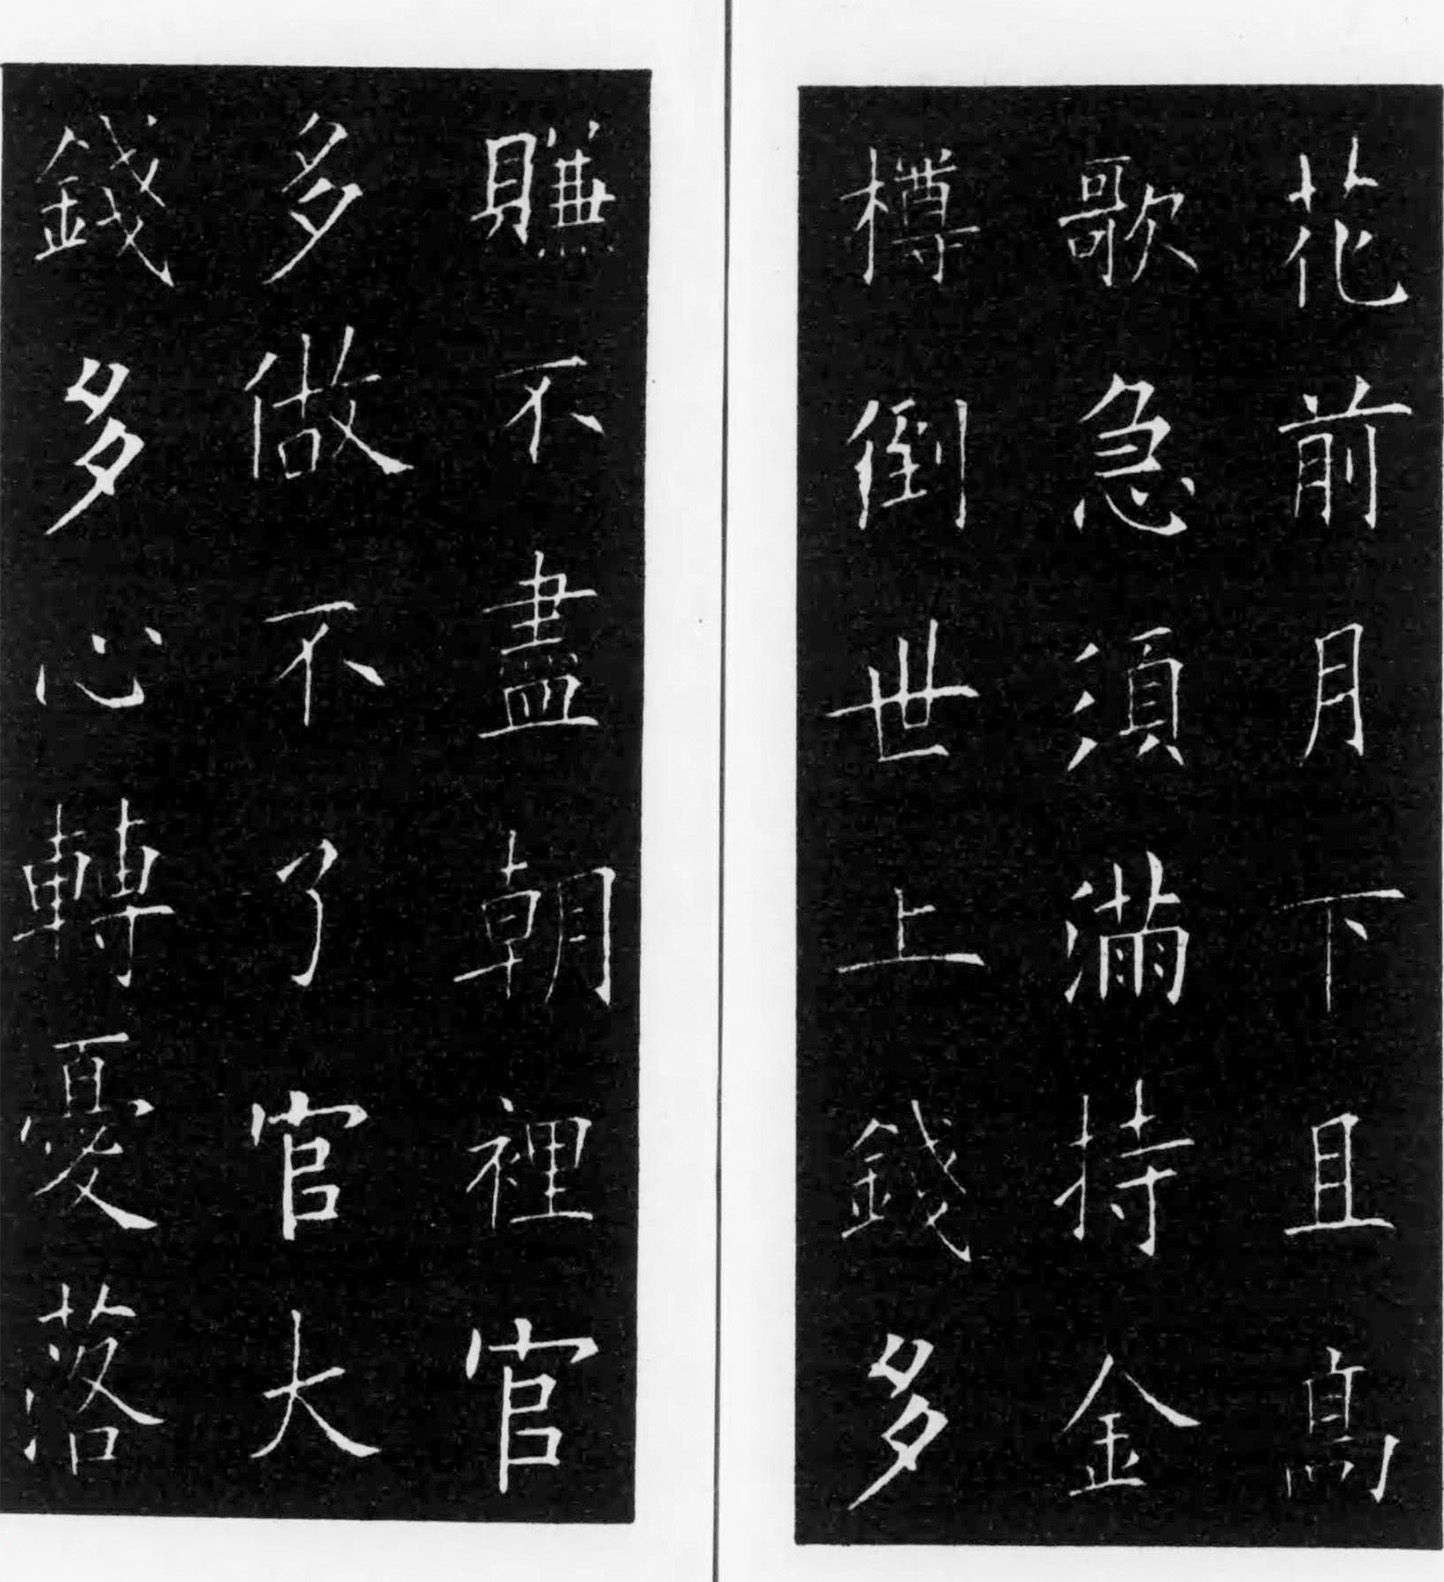 花前月下且高
歌急須滿持金
樽倒世上錢多
賺不盡朝裡官
多做不了官大
錢多心轉憂落